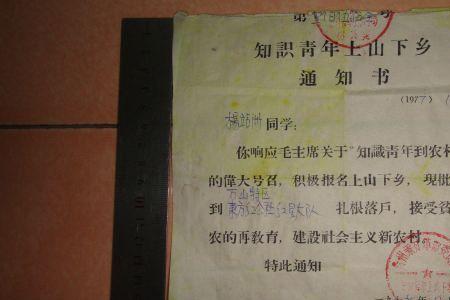 第 号
知識青年上山下乡
通知书
(1977
同学:
你响应毛主席关于"知識青年到农村
的偉大号召，积极报名上山下乡，現批
万山特区
到 东方红公社红星大队 扎根落戶，接受贫
农的再教育，建設社会主义新农村。
特此通知